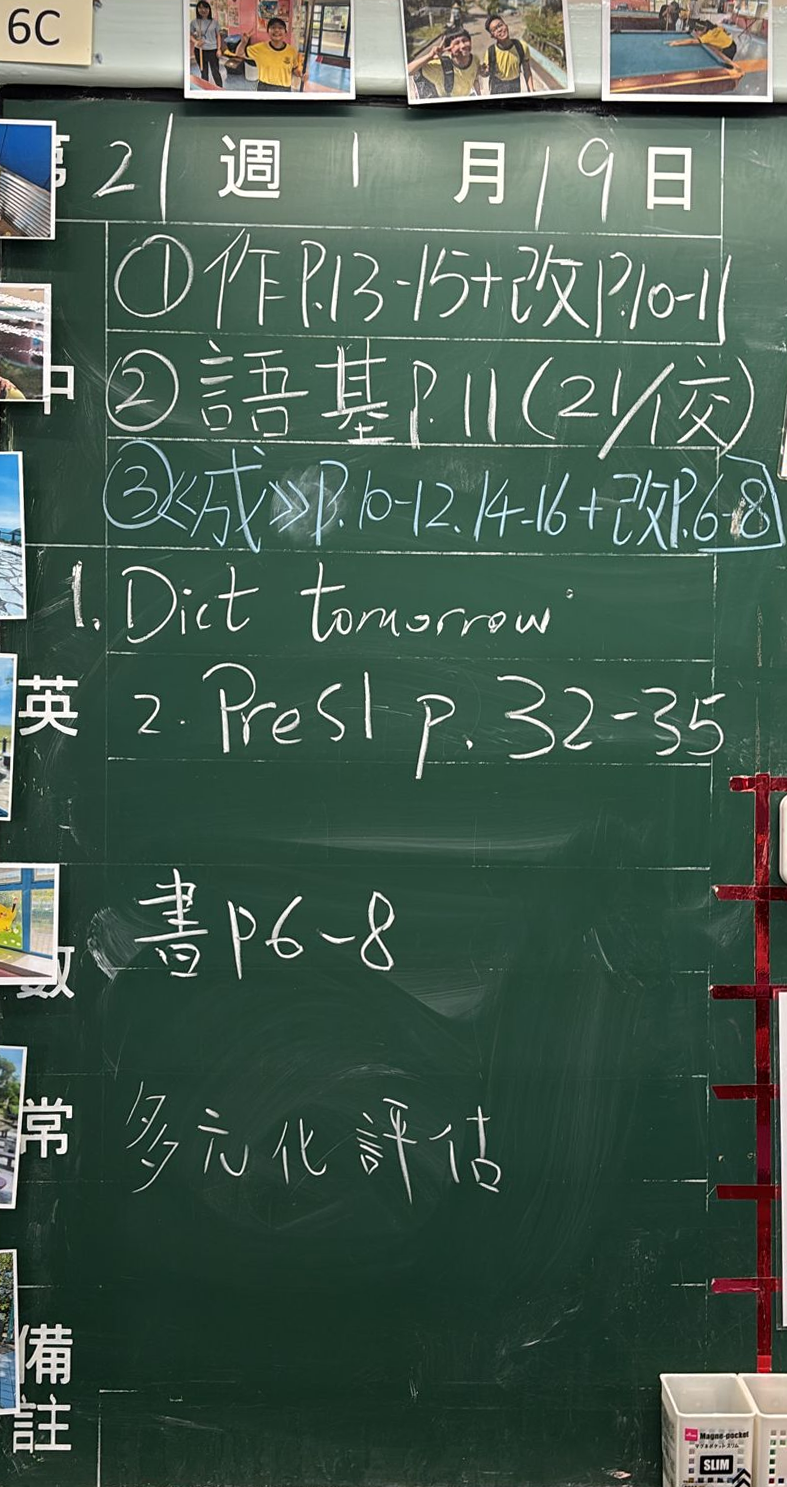 6C
第 21 週 1 月 19 日
中
① 作P.13-15+改P.10-11
② 語基P.11(21/1交)
③《成》P.10-12.14-16+改P.6-8
英
1. Dict tomorrow
2. Pres1 p. 32-35
數
書P6-8
常
多元化評估
備註
Magne-pocket
SLIM